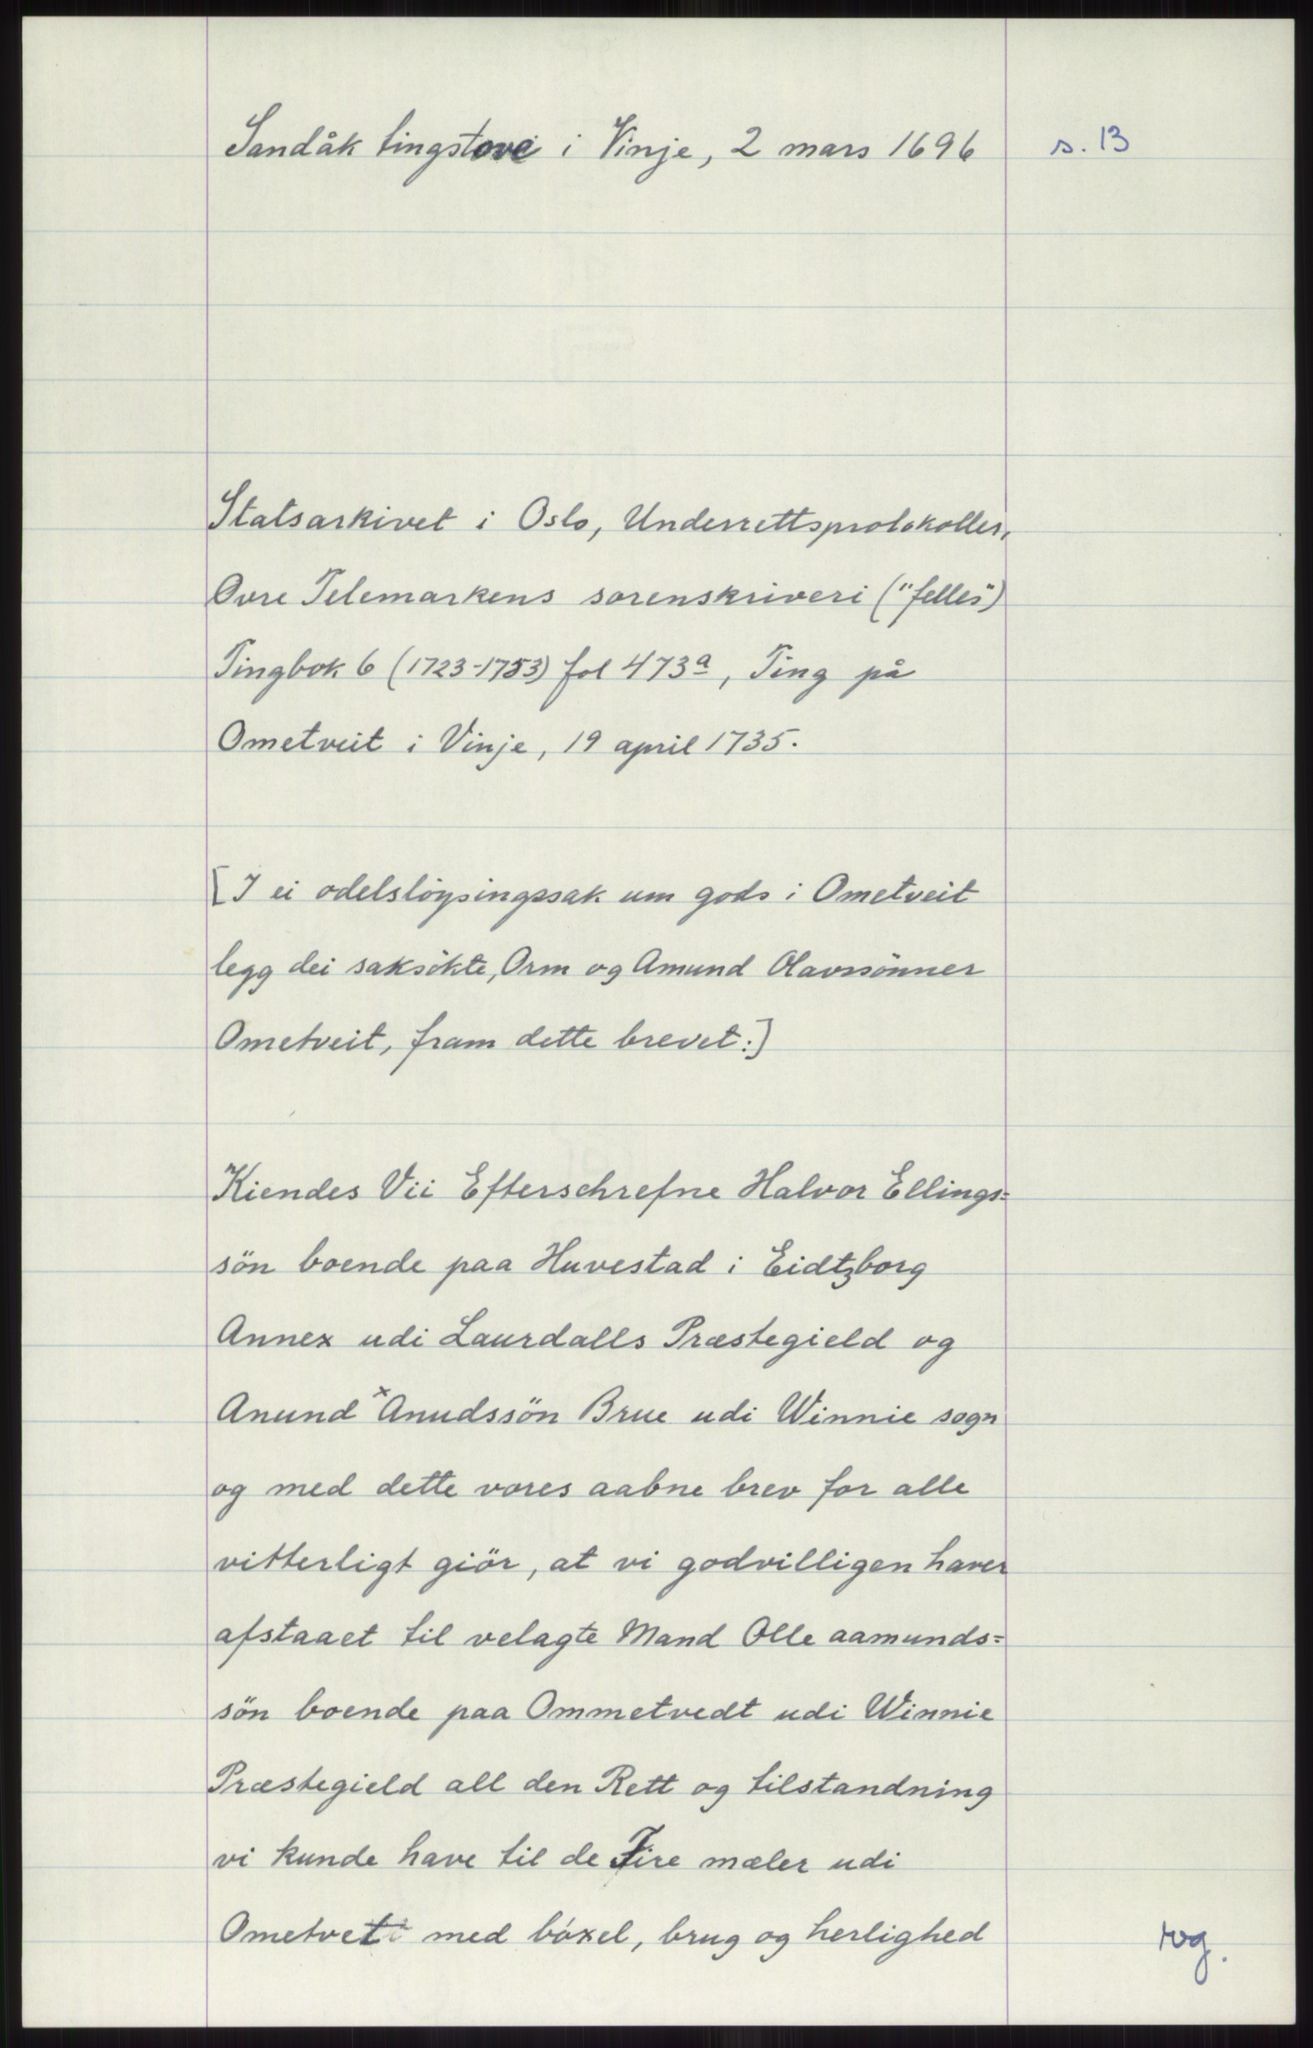 Sandåk tingstove i Vinje, 2 mars 1696 s. 13
Statsarkivet i Oslo, Underrettsprotokoller,
Øvre Telemarkens sorenskriveri ("felles")
Tingbok 6 (1723-1753) fol 473a, Ting på
Ometveit i Vinje, 19 april 1735.
[I ei odelsløysingssak um gods i Ometveit
legg dei saksökte, Orm og Amund Olavssönner
Ometveit, fram dette brevet:]
Kiendes Vii Efterschrefne Halvor Ellings=
sön boende paa Huvestad i Eidtzborg
Annex udi Laurdalls Præstegield og
Anund x Anudssön Brue udi Winnie sogn
og med dette vores aabne brev for alle
vitterligt giör, at vi godvilligen haver
afstaaet til velagte Mand Olle aamunds=
sön boende paa Ommetvedt udi Winnie
Præstegield all den Rett og tilstandning
vi kunde have til de Fire mæler udi
Ometvet med böxel, brug og herlighed